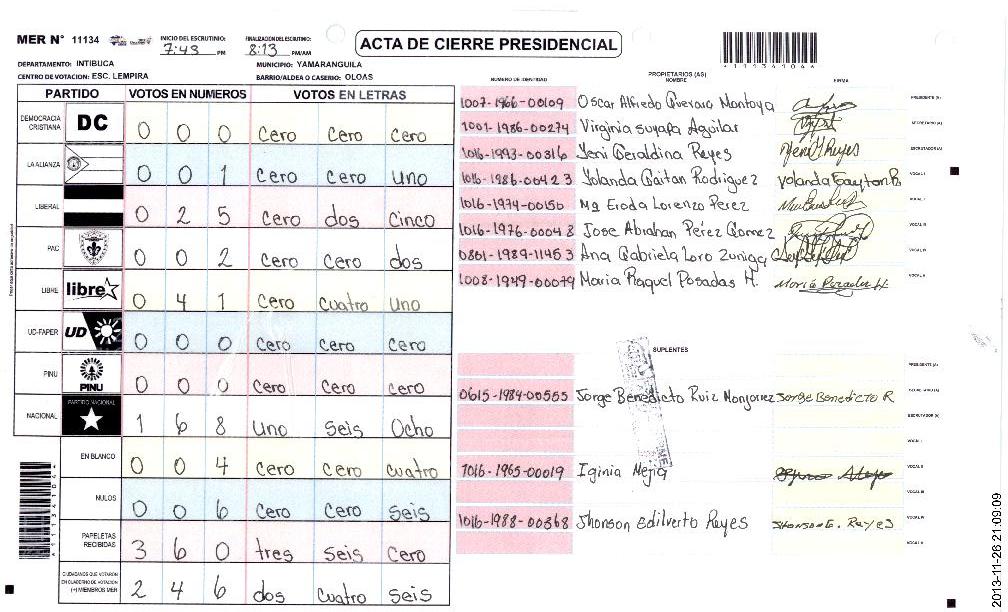 MER N° 11134 INICIO DEL ESCRUTINIO: 7:43 PM FINALIZACION DEL ESCRUTINIO: 8:13 PM/AM
ACTA DE CIERRE PRESIDENCIAL
DEPARTAMENTO: INTIBUCA MUNICIPIO: YAMARANGUILA
CENTRO DE VOTACION: ESC. LEMPIRA BARRIO/ALDEA O CASERIO: OLOAS
PARTIDO VOTOS EN NUMEROS VOTOS EN LETRAS
DEMOCRACIA CRISTIANA DC 0 0 0 Cero Cero Cero
LA ALIANZA 0 0 1 Cero Cero Uno
LIBERAL 0 2 5 Cero dos Cinco
PAC 0 0 2 Cero Cero dos
LIBRE libre 0 4 1 Cero Cuatro Uno
UD-FAPER UD 0 0 0 Cero Cero Cero
PINU PINU 0 0 0 Cero Cero Cero
NACIONAL PARTIDO NACIONAL 1 6 8 Uno Seis Ocho
EN BLANCO 0 0 4 Cero Cero Cuatro
NULOS 0 0 6 Cero Cero Seis
PAPELETAS RECIBIDAS 3 6 0 tres Seis Cero
CIUDADANOS QUE VOTARON EN CUADERNO DE VOTACION (+) MIEMBROS MER 2 4 6 dos Cuatro Seis
PROPIETARIOS (AS)
NUMERO DE IDENTIDAD NOMBRE FIRMA
1007-1966-00109 Oscar Alfredo Guevara Montoya PRESIDENTE (A)
1001-1986-00274 Virginia suyapa Aguilar SECRETARIO (A)
1016-1993-00316 Yeni Geraldina Reyes Yeni Reyes ESCRUTADOR (A)
1016-1986-00423 Yolanda Gaitan Rodriguez Yolanda Gaytan R VOCAL I
1016-1974-00150 Mª Eroda Lorenzo Perez
1016-1976-00048 Jose Abrahan Pérez Gomez
0801-1989-11453 Ana Gabriela Loro Zuniga
1008-1949-00079 Maria Raquel Posadas H. Maria Posadas H.
SUPLENTES
PRESIDENTE (A)
0615-1984-00555 Jorge Benedicto Ruiz Monjarrez Jorge Benedicto R SECRETARIO (A)
ESCRUTADOR (A)
VOCAL I
1016-1965-00019 Iginia Mejia VOCAL II
VOCAL III
1016-1988-00368 Jhonson Edilverto Reyes Jhonson E. Reyes VOCAL IV
VOCAL V
2013-11-26 21:09:09